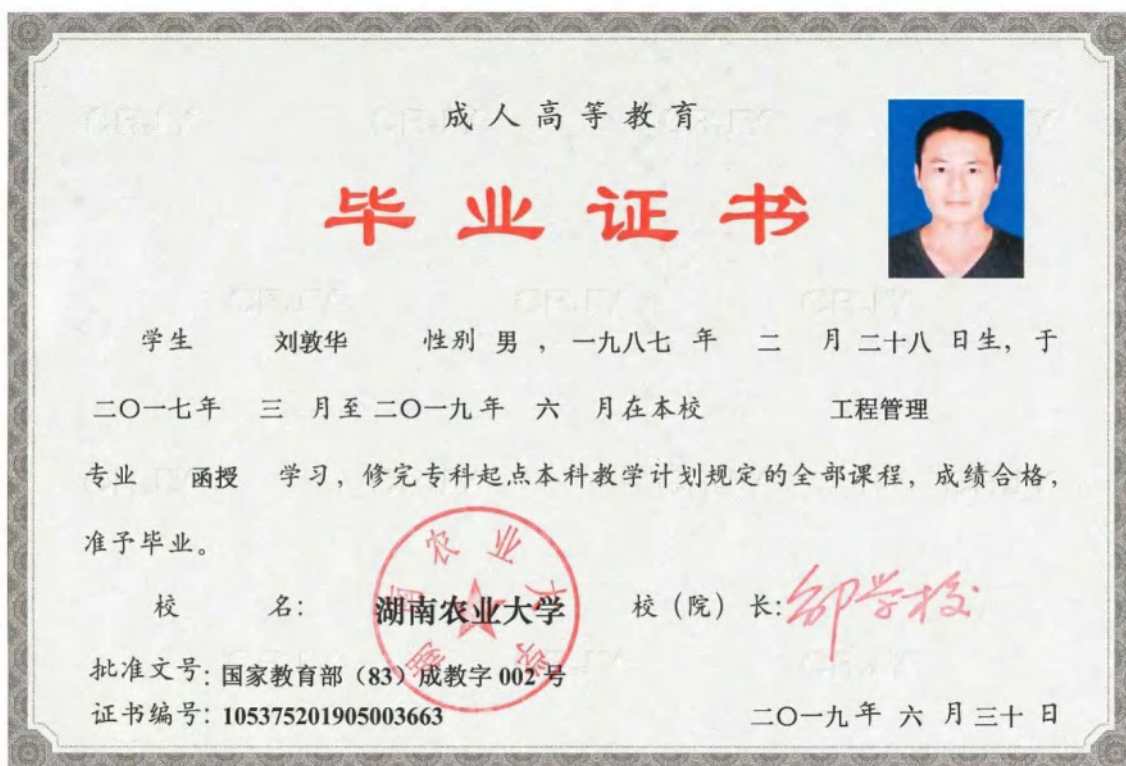 成人高等教育
毕业证书
学生 刘敦华 性别 男 ， 一九八七 年 二 月 二十八 日生，于
二〇一七年 三 月至 二〇一九年 六 月在本校 工程管理
专业 函授 学习，修完专科起点本科教学计划规定的全部课程，成绩合格，
准予毕业。
校 名： 湖南农业大学 校（院）长：邹学校
湖南农业大学
批准文号：国家教育部（83）成教字 002 号
证书编号：105375201905003663 二〇一九年 六 月 三十 日